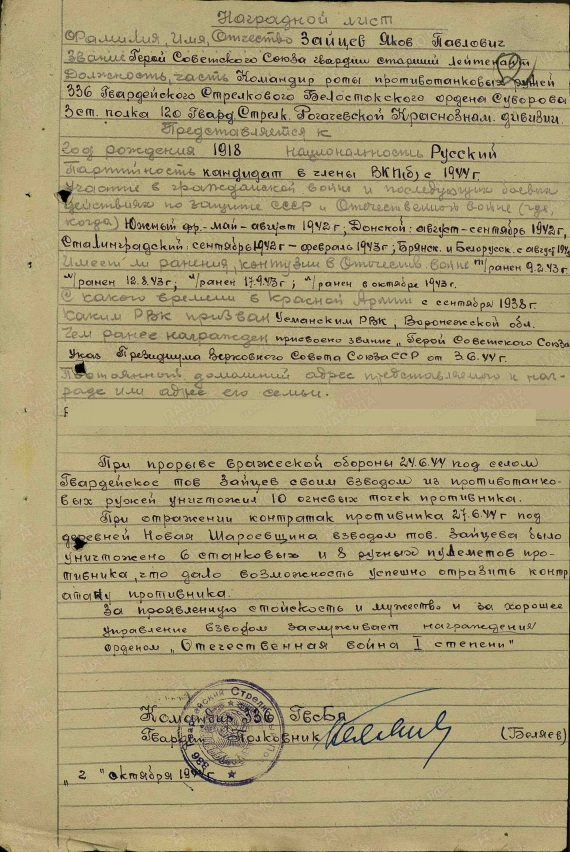 Наградной лист
Фамилия, Имя, Отчество Зайцев Яков Павлович
Звание Герой Советского Союза гвардии старший лейтенант
Должность, часть Командир роты противотанковых ружей
336 Гвардейского Стрелкового Белостокского ордена Суворова
3 ст. полка 120 Гвард. Стрелк. Рогачевской Краснознам. дивизии.
Представляется к
Год рождения 1918 Национальность Русский
Партийность кандидат в члены ВКП(б) с 1944 г.
Участие в гражданской войне и последующих боевых
действиях по защите СССР и Отечественной войне (где,
когда) Южный фр.-май-август 1942г; Донской: август-сентябрь 1942г,
Сталинградский: сентябрь 1942г-февраль 1943г; Брянск. и Белорусск. с август
Имеет ли ранения, контузии в Отечеств войне т/ранен 9.2.43г
л/ранен 12.8.43г; л/ранен 17.9.43г; л/ранен в октябре 1943г.
С какого времени в Красной Армии с сентября 1938г.
Каким РВК призван Усманским РВК, Воронежской обл.
Чем ранее награжден присвоено звание „Герой Советского Союза
Указ Президиума Верховного Совета Союза ССР от 3.6.44г.
Постоянный домашний адрес представляемого к наг-
раде или адрес его семьи.
При прорыве вражеской обороны 24.6.44 под селом
Гвардейское тов Зайцев своим взводом из противотанко-
вых ружей уничтожил 10 огневых точек противника.
При отражении контратак противника 27.6.44г под
деревней Новая Шароевщина взводом тов. Зайцева было
уничтожено 6 станковых и 8 ручных пулеметов про-
тивника, что дало возможность успешно отразить контр
атаку противника.
За проявленную стойкость и мужество и за хорошее
управление взводом заслуживает награждения
орденом „Отечественная война I степени"
Командир 336 ГвсБп
Гвардии Полковник (Беляев)
„2" октября 194 г.